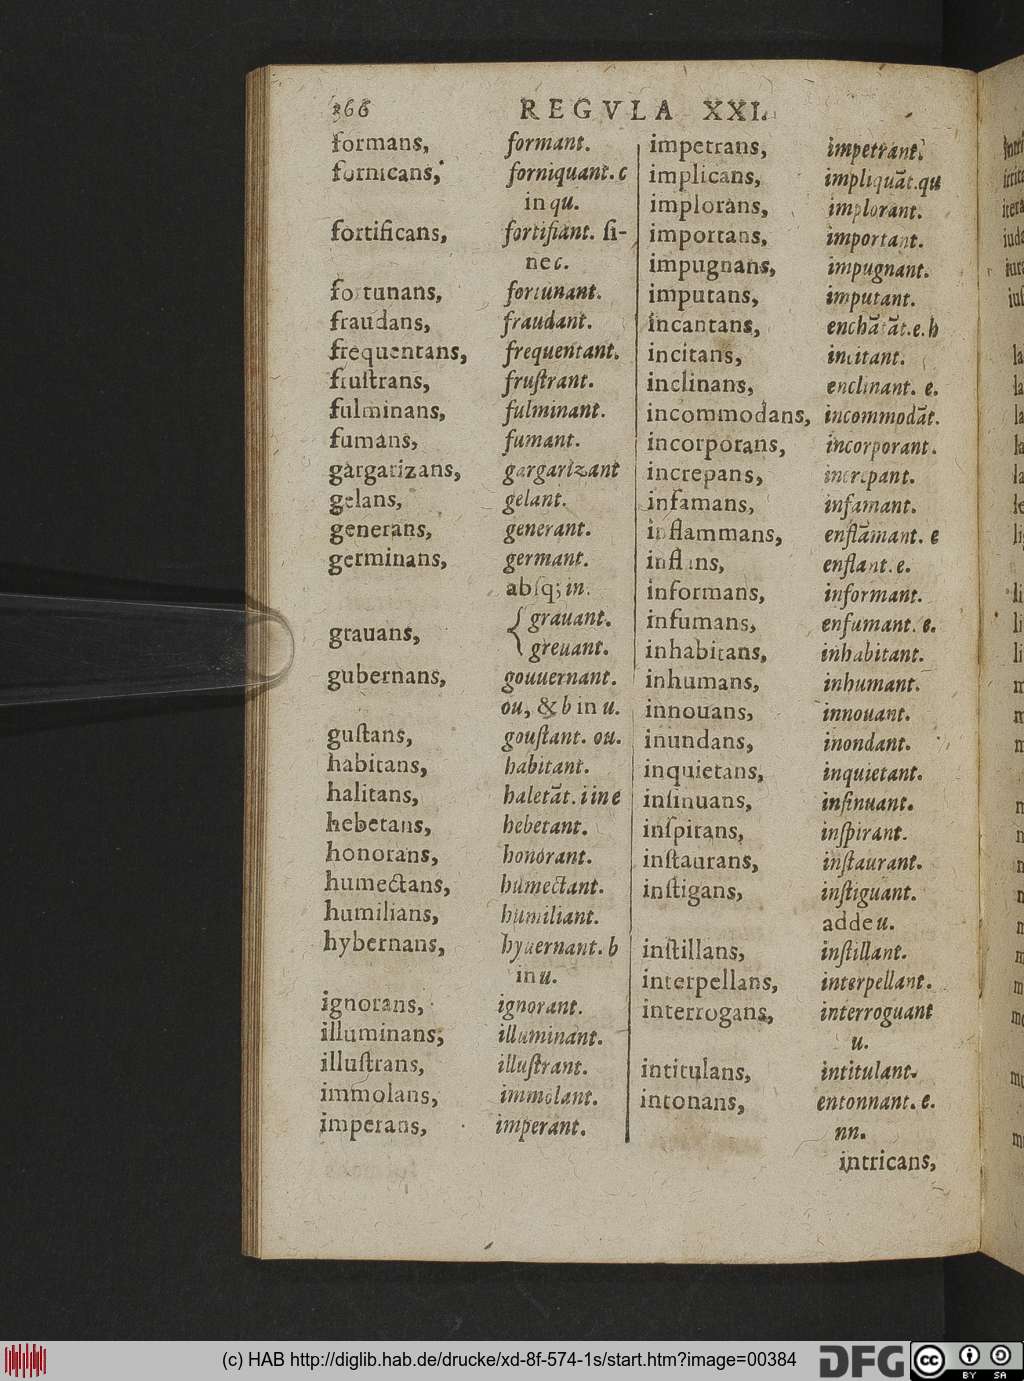 366
REGVLA XXI.
formans, formant.
fornicans, forniquant. c
in qu.
fortificans, fortifiant. ſi-
ne c.
fortunans, fortunant.
fraudans, fraudant.
frequentans, frequentant.
fruſtrans, fruſtrant.
fulminans, fulminant.
fumans, fumant.
gargarizans, gargarizant
gelans, gelant.
generans, generant.
germinans, germant.
abſq; in.
grauans, { grauant.
greuant.
gubernans, gouuernant.
ou, & b in u.
guſtans, gouſtant. ou.
habitans, habitant.
halitans, haletãt. i in e
hebetans, hebetant.
honorans, honorant.
humectans, humectant.
humilians, humiliant.
hybernans, hyuernant. b
in u.
ignorans, ignorant.
illuminans, illuminant.
illuſtrans, illuſtrant.
immolans, immolant.
imperans, imperant.
impetrans, impetrant.
implicans, impliquãt. qu
implorans, implorant.
importans, important.
impugnans, impugnant.
imputans, imputant.
incantans, enchãtãt. e. h
incitans, incitant.
inclinans, enclinant. e.
incommodans, incommodãt.
incorporans, incorporant.
increpans, increpant.
infamans, infamant.
inflammans, enflãmant. e
inflans, enflant. e.
informans, informant.
infumans, enfumant. e.
inhabitans, inhabitant.
inhumans, inhumant.
innouans, innouant.
inundans, inondant.
inquietans, inquietant.
inſinuans, inſinuant.
inſpirans, inſpirant.
inſtaurans, inſtaurant.
inſtigans, inſtiguant.
adde u.
inſtillans, inſtillant.
interpellans, interpellant.
interrogans, interroguant
u.
intitulans, intitulant.
intonans, entonnant. e.
nn.
intricans,
(c) HAB http://diglib.hab.de/drucke/xd-8f-574-1s/start.htm?image=00384
DFG
cc
BY SA